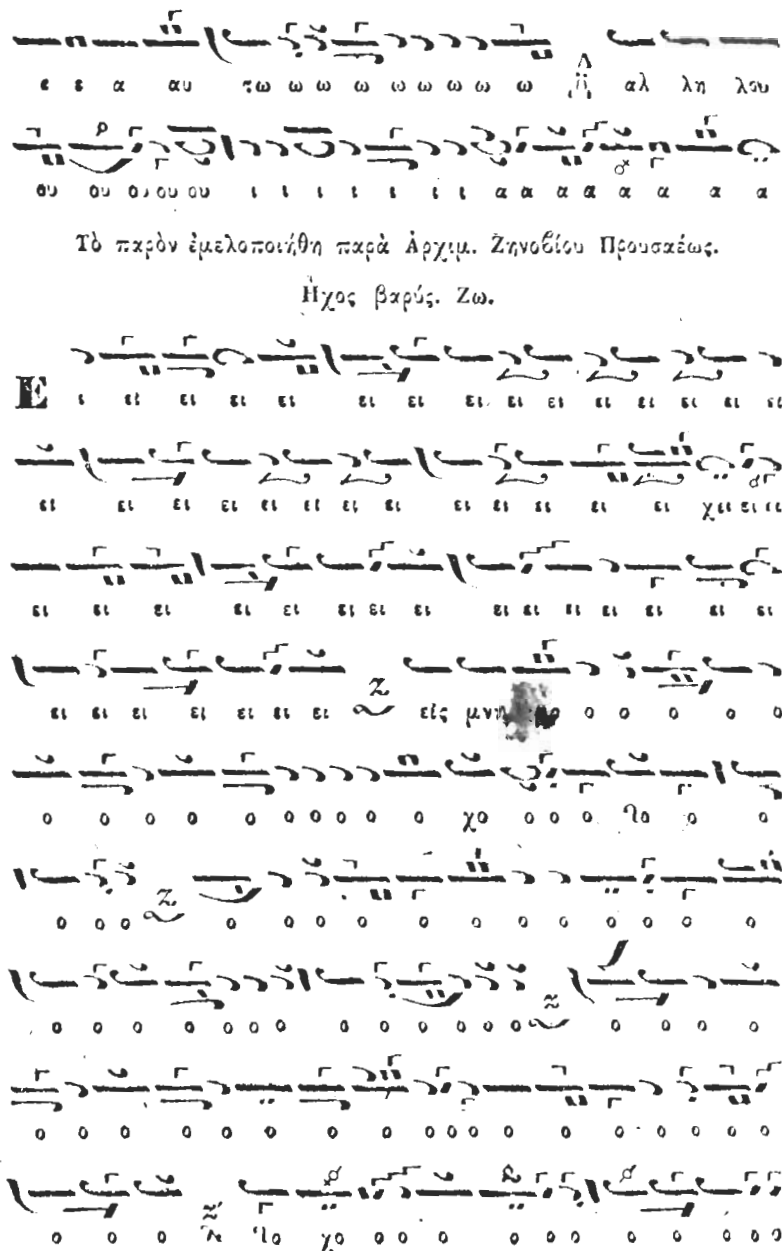 ε ε α αυ τω ω ω ω ω ω ω ω ω αλ λη λου
ου ου ου ου ου ι ι ι ι ι ι ι α α α α α α α α
Τὸ παρὸν ἐμελοποιήθη παρὰ Ἀρχιμ. Ζηνοβίου Προυσαέως.
Ἦχος βαρύς. Ζω.
Ε ι ει ει ει ει ει ει ει ει ει ει ει ει ει ει
ει ει ει ει ει ει ει ει ει ει ει ει ει χει ει ει
ει ει ει ει ει ει ει ει ει ει ει ει ει ει ει
ει ει ει ει ει ει ει εἰς μνη ο ο ο ο ο ο
ο ο ο ο ο ο ο ο ο ο χο ο ο ο λο ο ο
ο ο ο ο ο ο ο ο ο ο ο ο ο ο ο
ο ο ο ο ο ο ο ο ο ο ο ο ο ο ο ο ο ο ο
ο ο ο ο ο ο ο ο ο ο ο ο ο ο ο ο ο
ο ο ο ο λο χο ο ο ο ο ο ο ο ο ο ο ο